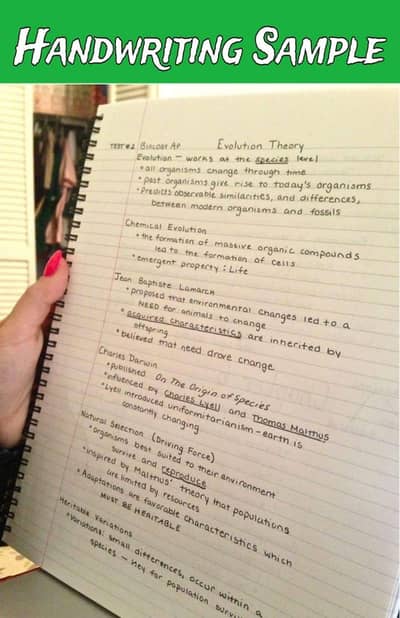 HANDWRITING SAMPLE
TEST #2 BIOLOGY AP Evolution Theory
Evolution – works at the species level
• all organisms change through time
• past organisms give rise to today's organisms
• Predicts observable similarities, and differences,
between modern organisms and fossils
Chemical Evolution
• the formation of massive organic compounds
led to the formation of cells
• emergent property : Life
Jean Baptiste Lamarck
• proposed that environmental changes led to a
NEED for animals to change
• acquired characteristics are inherited by
offspring
• believed that need drove change
Charles Darwin
• Published On The Origin of Species
• influenced by Charles Lyell and Thomas Malthus
• Lyell introduced uniformitarianism – earth is
constantly changing
Natural Selection (Driving Force)
• organisms best suited to their environment
survive and reproduce
• inspired by Malthus' theory that populations
are limited by resources
• Adaptations are favorable characteristics which
MUST BE HERITABLE
Heritable Variations
• Variations: small differences, occur within a
species – key for population